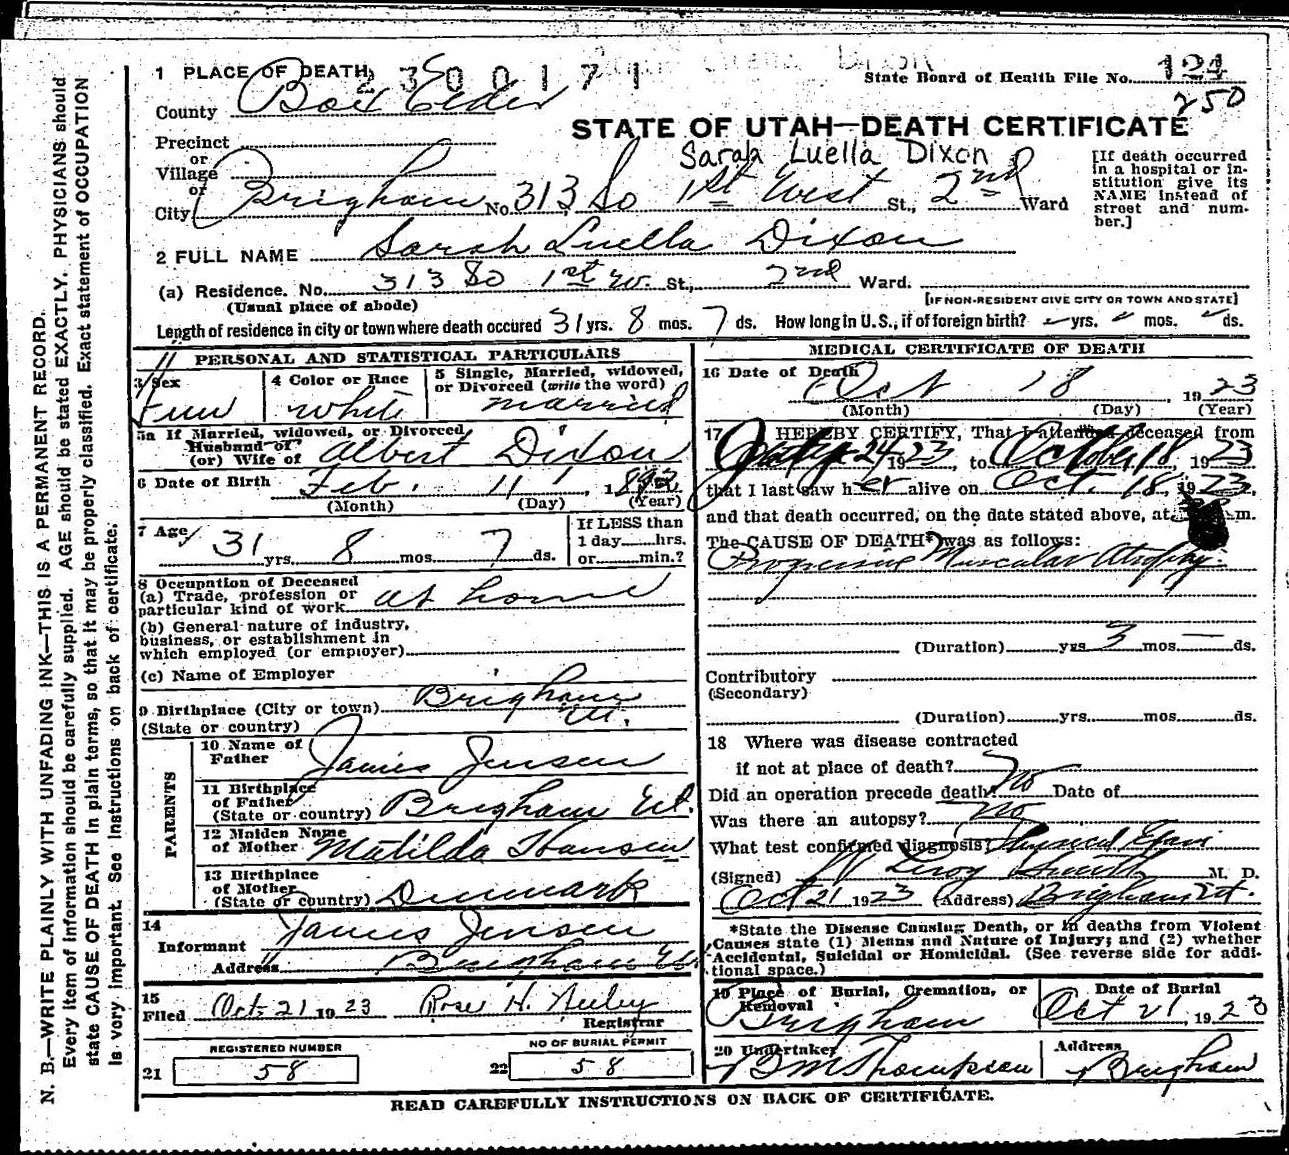 1 PLACE OF DEATH
2300171
State Board of Health File No. 121
250
County Box Elder
STATE OF UTAH—DEATH CERTIFICATE
Sarah Luella Dixon
Precinct
or
Village
or
City Brigham No. 313 So 1st West St., 2nd Ward
[If death occurred
in a hospital or in-
stitution give its
NAME instead of
street and num-
ber.]
2 FULL NAME Sarah Luella Dixon
(a) Residence. No. 313 So 1st W. St., 2nd Ward.
(Usual place of abode)
[IF NON-RESIDENT GIVE CITY OR TOWN AND STATE]
Length of residence in city or town where death occured 31 yrs. 8 mos. 7 ds. How long in U.S., if of foreign birth? yrs. mos. ds.
PERSONAL AND STATISTICAL PARTICULARS
3 Sex
Fem
4 Color or Race
white
5 Single, Married, widowed,
or Divorced (write the word)
married
5a If Married, widowed, or Divorced
Husband of
(or) Wife of Albert Dixon
6 Date of Birth Feb. 11, 1892
(Month) (Day) (Year)
7 Age 31 yrs. 8 mos. 7 ds.
If LESS than
1 day hrs.
or min.?
8 Occupation of Deceased
(a) Trade, profession or
particular kind of work at home
(b) General nature of industry,
business, or establishment in
which employed (or employer)
(c) Name of Employer
9 Birthplace (City or town) Brigham
(State or country) Ut.
PARENTS
10 Name of
Father James Jensen
11 Birthplace
of Father
(State or country) Brigham Ut.
12 Maiden Name
of Mother Matilda Hansen
13 Birthplace
of Mother
(State or country) Denmark
14
Informant James Jensen
Address Brigham Ut.
15
Filed Oct. 21 1923 Rose H. Neeley
Registrar
REGISTERED NUMBER
21 58
NO OF BURIAL PERMIT
22 58
MEDICAL CERTIFICATE OF DEATH
16 Date of Death
Oct 18, 1923
(Month) (Day) (Year)
17 I HEREBY CERTIFY, That I attended deceased from
July 24 1923, to October 18, 1923
that I last saw her alive on Oct. 18, 1923,
and that death occurred, on the date stated above, at m.
The CAUSE OF DEATH* was as follows:
Progressive Muscular Atrophy.
(Duration) yrs 3 mos — ds.
Contributory
(Secondary)
(Duration) yrs. mos. ds.
18 Where was disease contracted
if not at place of death?
Did an operation precede death? No Date of
Was there an autopsy? No
What test confirmed diagnosis?
(Signed) W Leroy Smith M. D.
Oct 21 1923 (Address) Brigham Ut.
*State the Disease Causing Death, or in deaths from Violent
Causes state (1) Means and Nature of Injury; and (2) whether
Accidental, Suicidal or Homicidal. (See reverse side for addi-
tional space.)
19 Place of Burial, Cremation, or
Removal
Brigham
Date of Burial
Oct 21, 1923
20 Undertaker
B M Thompson
Address
Brigham
READ CAREFULLY INSTRUCTIONS ON BACK OF CERTIFICATE.
N. B.—WRITE PLAINLY WITH UNFADING INK—THIS IS A PERMANENT RECORD.
Every item of information should be carefully supplied. AGE should be stated EXACTLY. PHYSICIANS should
state CAUSE OF DEATH in plain terms, so that it may be properly classified. Exact statement of OCCUPATION
is very important. See Instructions on back of certificate.